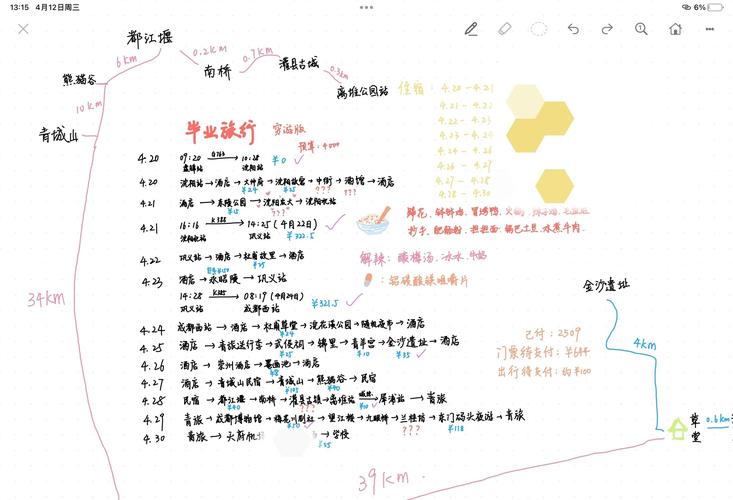 13:15 4月12日周三
6%
都江堰
6km
0.2km
0.7km
南桥
灌县古城
0.3km
离堆公园站
熊猫谷
10km
青城山
34km
住宿:
4.20 -4.21
4.21 -4.22
4.22 -4.23
4.23 -4.24
4.24 -4.26
4.26 -4.27
4.27-4.28
4.28 -4.30
毕业旅行 穷游版
预算:4000
4.20 09:20 → 10:28 ¥0
沈阳站
4.20 沈阳站→酒店→大帅府→沈阳故宫→中街→酒馆→酒店
¥24 ¥25 ??? ???
4.21 酒店→东陵公园→沈阳农大→沈阳北站
¥15 "???"
4.21 16:16 K388 14:25 (4月22日) ¥322.5
沈阳北站 巩义站
4.22 巩义站→酒店→杜甫故里→酒店
¥75
4.23 酒店→永昭陵→巩义站
14:28 → 08:19 (4月24日) ¥321.5
巩义站 成都西站
4.24 成都西站→酒店→杜甫草堂→浣花溪公园→随机夜市→酒店
¥24
4.25 酒店→青旅送行李→武侯祠→锦里→青羊宫→金沙遗址→酒店
¥25 ¥10 ¥35
4.26 酒店→崇州酒店→罨画池→酒店
¥8
4.27 酒店→青城山民宿→青城山→熊猫谷→民宿
4.28 民宿→都江堰→南桥→灌县古城→离堆站→犀浦站→青旅
¥40 ¥10
4.29 青旅→成都博物馆→→望江楼→九眼桥→兰桂坊→东门码头夜游→青旅
??? ¥118
4.30 青旅→天府机 →学校
鲜花、
抄手、肥肠粉、担担面、锅巴土豆、水煮牛肉、
解辣:酸梅汤、冰水、牛奶
:铝碳酸镁咀嚼片
金沙遗址
4km
已付:2309
门票待支付:¥644
出行待支付:约¥100
草堂
0.6km
39km